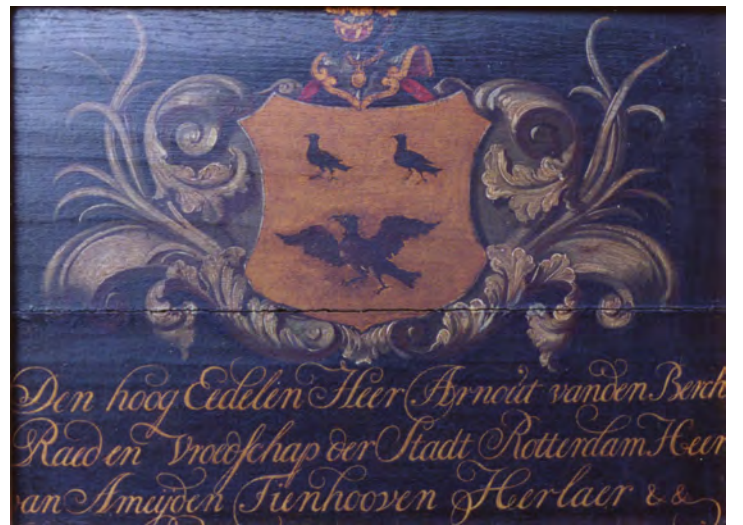 Den hoog Eedelen Heer Arnout vanden Berch
Raed en Vroedschap der Stadt Rotterdam Heer
van Ameyden Tienhooven Herlaer & &